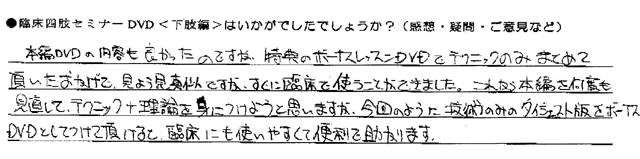 ●臨床四肢セミナーDVD<下肢編>はいかがでしたでしょうか?(感想・疑問・ご意見など)
本編DVDの内容も良かったのですが、特典のボーナスレッスンDVDでテクニックのみまとめて
頂いたおかげで、見よう見真似ですが、すぐに臨床で使うことができました。これから本編を何度も
見直して、テクニック+理論を身につけようと思いますが、今回のように技術のみのダイジェスト版をボーナス
DVDとしてつけて頂けると、臨床にも使いやすくて便利で助かります。